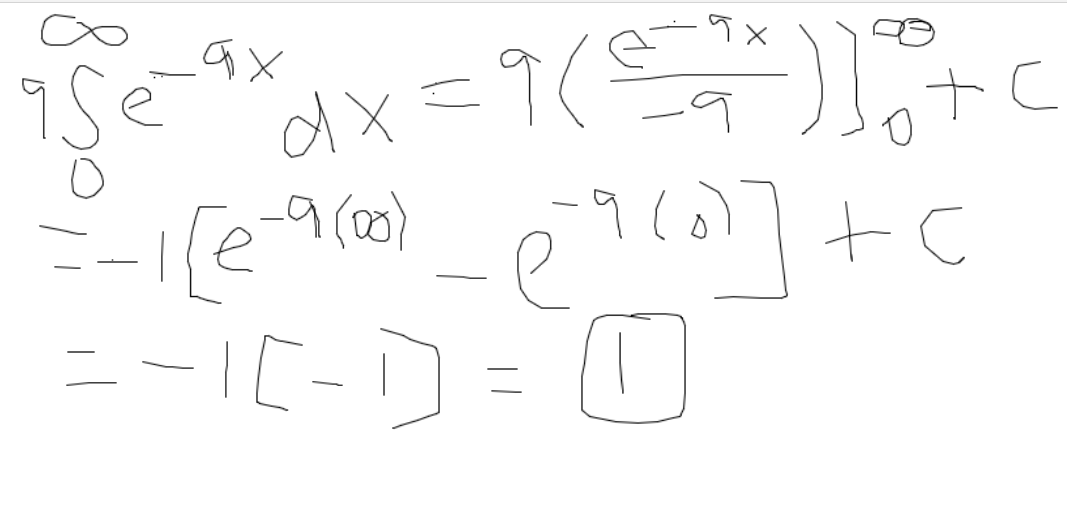 9∫₀^∞ e^{-9x} dx = 9(e^{-9x}/-9)]₀^∞ + C
= -1[e^{-9(∞)} - e^{-9(0)}] + C
= -1[-1] = 1